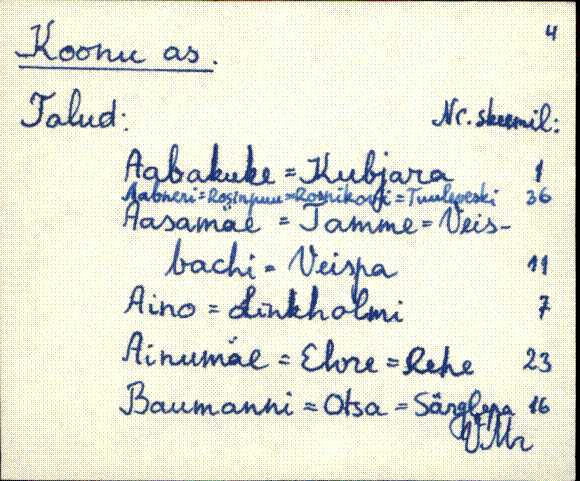 4
Koonu as.
Talud: Nr. skeemil:
Aabakuke = Kubjara 1
Aabneri = Rosinpuu = Rosnikovi = Tuuleveski 36
Aasamäe = Tamme = Veis-
bachi = Veispa 11
Aino = Linkholmi 7
Ainumäe = Elvre = Rehe 23
Baumanni = Otsa = Särglepa 16
VMr